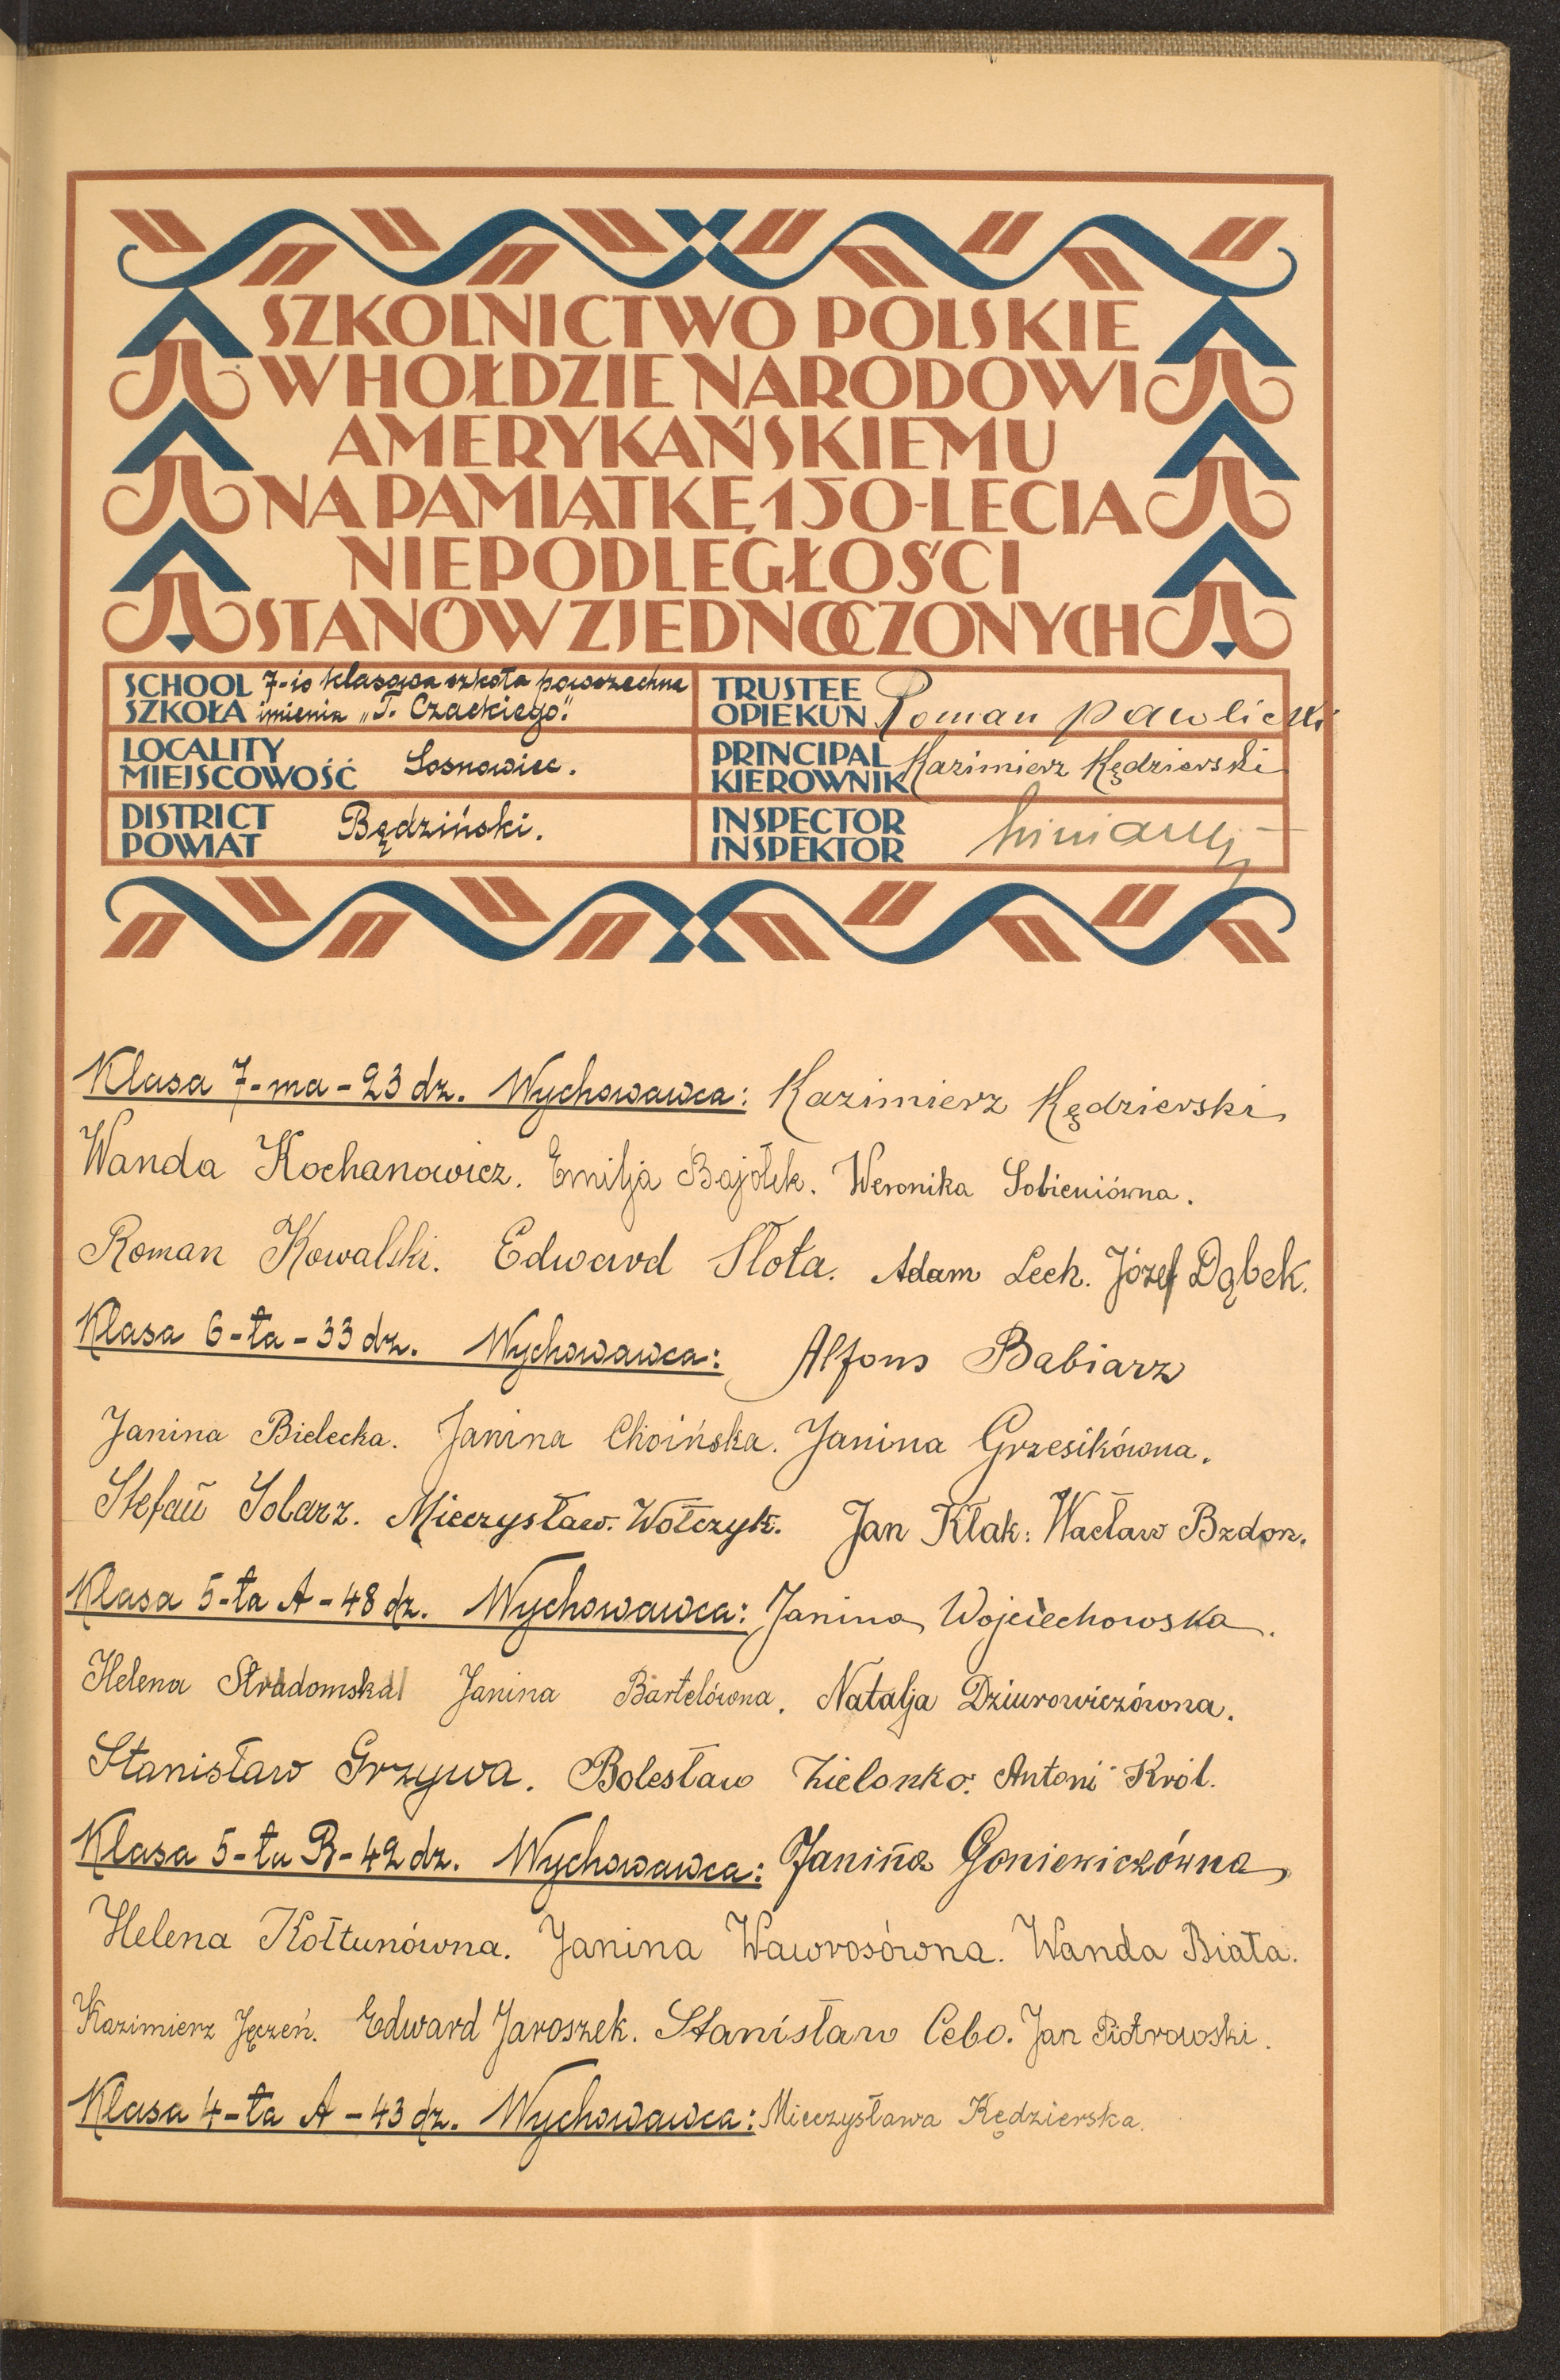 SZKOLNICTWO POLSKIE
W HOŁDZIE NARODOWI
AMERYKAŃSKIEMU
NA PAMIĄTKĘ 150-LECIA
NIEPODLEGŁOŚCI
STANÓW ZJEDNOCZONYCH
SCHOOL 7-io klasowa szkoła powszechna
SZKOŁA imienia „T. Czackiego".
LOCALITY
MIEJSCOWOŚĆ Sosnowiec.
DISTRICT
POWIAT Będziński.
TRUSTEE
OPIEKUN Roman Pawlicki
PRINCIPAL
KIEROWNIK Kazimierz Kędzierski
INSPECTOR
INSPEKTOR
Klasa 7-ma - 23 dz. Wychowawca: Kazimierz Kędzierski
Wanda Kochanowicz. Emilja Bajołek. Weronika Sobieniówna.
Roman Kowalski. Edward Słota. Adam Lech. Józef Dąbek.
Klasa 6-ta - 33 dz. Wychowawca: Alfons Babiarz
Janina Bielecka. Janina Choińska. Janina Grzesikówna.
Stefan Solarz. Mieczysław Wołczyk. Jan Kłak. Wacław Bzdon.
Klasa 5-ta A - 48 dz. Wychowawca: Janina Wojciechowska.
Helena Stradomska Janina Bartelówna. Natalja Dziurowiczówna.
Stanisław Grzywa. Bolesław Zielonko. Antoni Król.
Klasa 5-ta B - 42 dz. Wychowawca: Janina Goniewiczówna
Helena Kołtunówna. Janina Wawrosówna. Wanda Biała.
Kazimierz Jęczeń. Edward Jaroszek. Stanisław Cebo. Jan Piotrowski.
Klasa 4-ta A - 43 dz. Wychowawca: Mieczysława Kędzierska.